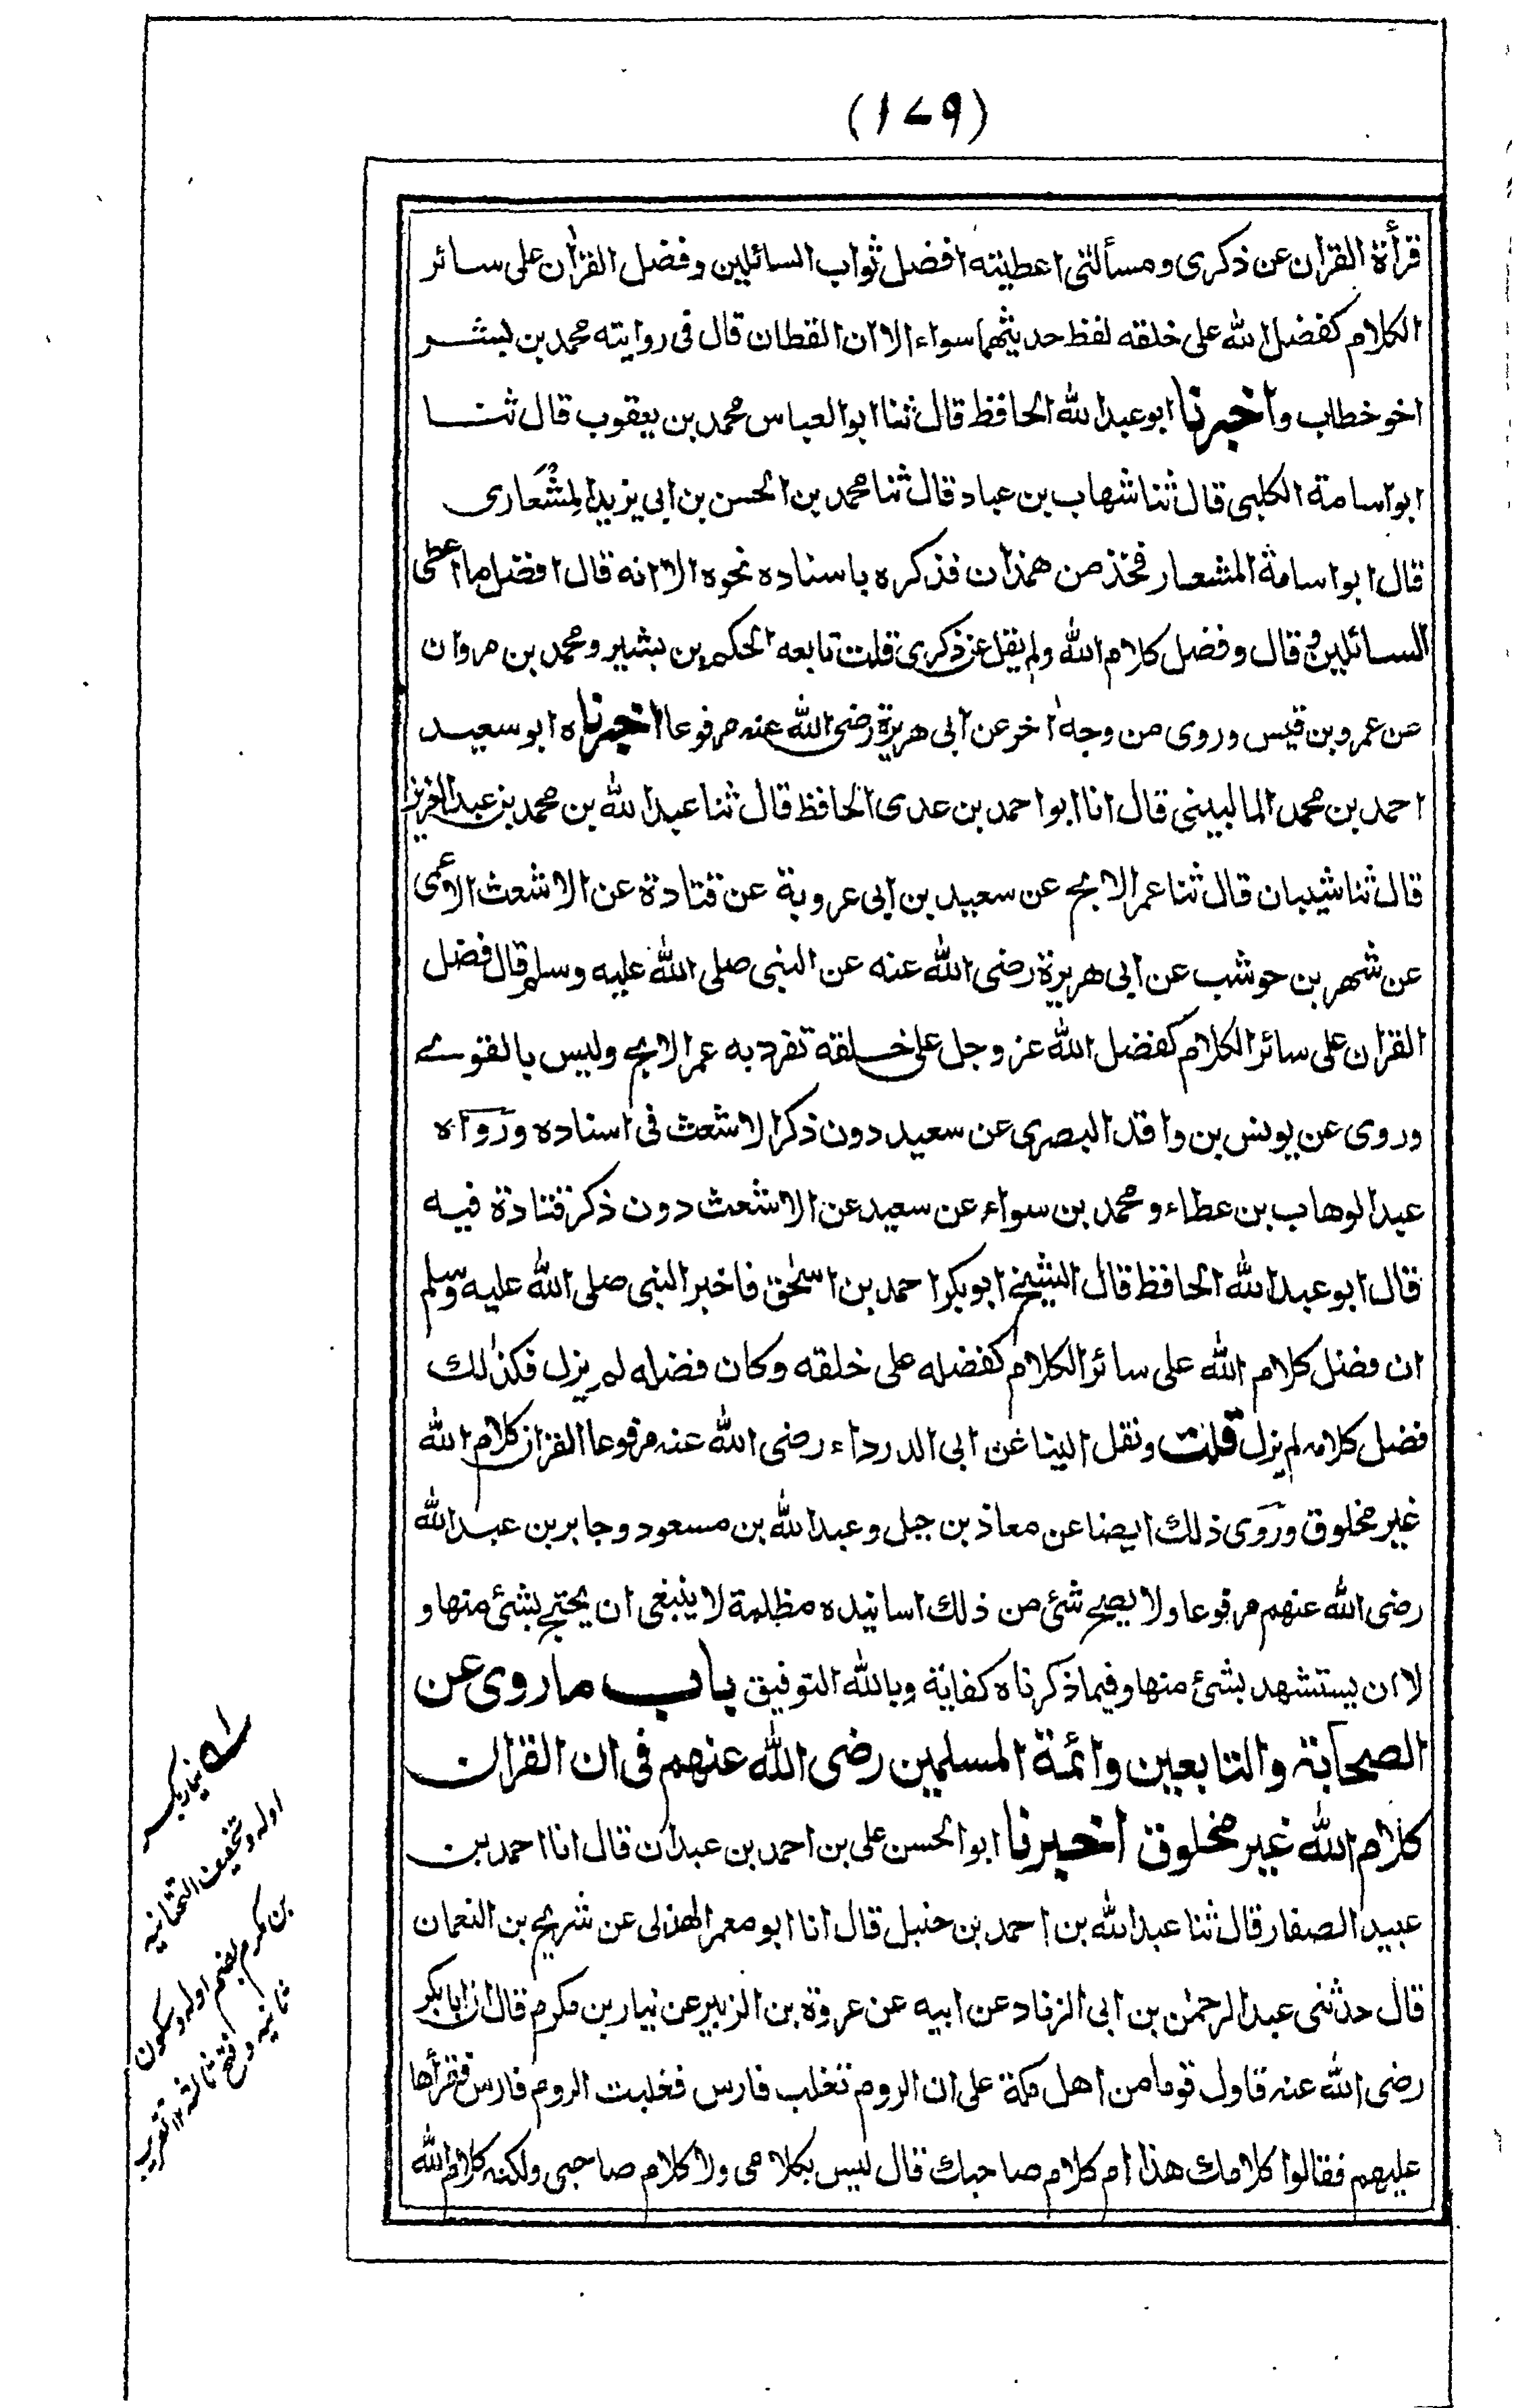 (۱۷۹)
قرأة القرأن عن ذكرى ومسألتى اعطيته افضل ثواب السائلين وفضل القرأن على سائر
الكلام كفضل الله على خلقه لفظ حديثهما سواء الا ان القطان قال فى روايته محمد بن بشر
اخو خطاب واخبرنا ابو عبد الله الحافظ قال ثنا ابو العباس محمد بن يعقوب قال ثنا
ابو اسامة الكلبى قال ثنا شهاب بن عباد قال ثنا محمد بن الحسن بن ابى يزيد المشعارى
قال ابو اسامة المشعار فخذ من همذان فذكره باسناده نحوه الا انه قال افضل ما اعطى
السائلين وقال وفضل كلام الله ولم يقل عن ذكرى قلت تابعه الحكم بن بشير ومحمد بن مروان
عن عمرو بن قيس وروى من وجه اخر عن ابى هريرة رضى الله عنه مرفوعا اخبرناه ابو سعيد
احمد بن محمد المالينى قال انا ابو احمد بن عدى الحافظ قال ثنا عبد الله بن محمد بن عبد العزيز
قال ثنا شيبان قال ثنا عمر الابح عن سعيد بن ابى عروبة عن قتادة عن الاشعث الاعمى
عن شهر بن حوشب عن ابى هريرة رضى الله عنه عن النبى صلى الله عليه وسلم قال فضل
القرأن على سائر الكلام كفضل الله عز وجل على خلقه تفرد به عمر الابح وليس بالقوى
وروى عن يونس بن واقد البصرى عن سعيد دون ذكر الاشعث فى اسناده ورواه
عبد الوهاب بن عطاء ومحمد بن سواء عن سعيد عن الاشعث دون ذكر قتادة فيه
قال ابو عبد الله الحافظ قال الشيخ ابو بكر احمد بن اسحق فاخبر النبى صلى الله عليه وسلم
ان فضل كلام الله على سائر الكلام كفضله على خلقه وكان فضله لم يزل فكذلك
فضل كلامه لم يزل قلت ونقل الينا عن ابى الدرداء رضى الله عنه مرفوعا القرأن كلام الله
غير مخلوق وروى ذلك ايضا عن معاذ بن جبل وعبد الله بن مسعود وجابر بن عبد الله
رضى الله عنهم مرفوعا ولا يصح شئ من ذلك اسانيده مظلمة لا ينبغى ان يحتج بشئ منها و
لا ان يستشهد بشئ منها وفيما ذكرناه كفاية وبالله التوفيق باب ما روى عن
الصحابة والتابعين وائمة المسلمين رضى الله عنهم فى ان القران
كلام الله غير مخلوق اخبرنا ابو الحسن على بن احمد بن عبدان قال انا احمد بن
عبيد الصفار قال ثنا عبد الله بن احمد بن حنبل قال انا ابو معمر الهذلى عن شريح بن النعمان
قال حدثنى عبد الرحمن بن ابى الزناد عن ابيه عن عروة بن الزبير عن نيار بن مكرم قال ان ابا بكر
رضى الله عنه قاول قوما من اهل مكة على ان الروم تغلب فارس فغلبت الروم فارس فقرأها
عليهم فقالوا كلامك هذا ام كلام صاحبك قال ليس بكلامى ولا كلام صاحبى ولكنه كلام الله
له نيار بكسر
اوله وتخفيف التحتانيه
بن مكرم بضم اوله وسكون
ثانيه وفتح ثالثه ۱۲ تقريب